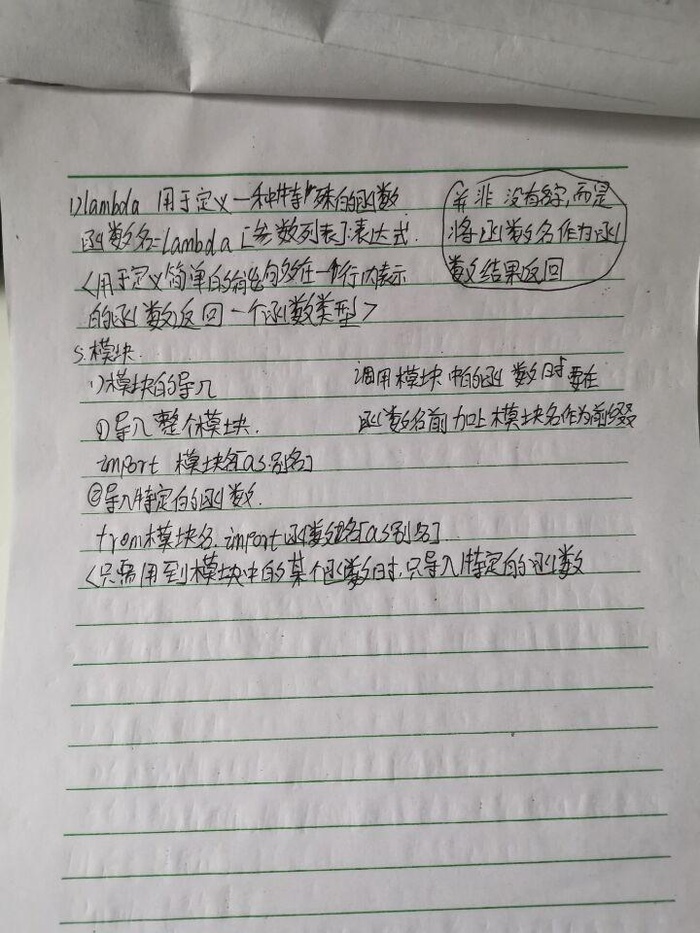 1)lambda 用于定义一种特殊的函数
函数名=lambda [参数列表]:表达式.
<用于定义简单的能够在一个行内表示
的函数返回一个函数类型>
并非没有名字,而是
将函数名作为函
数结果返回
5.模块.
1)模块的导入
①导入整个模块.
import 模块名[as别名]
调用模块中的函数时要在
函数名前加上模块名作为前缀
②导入特定的函数.
from模块名.import函数名[as别名]
<只需用到模块中的某个函数时.只导入特定的函数